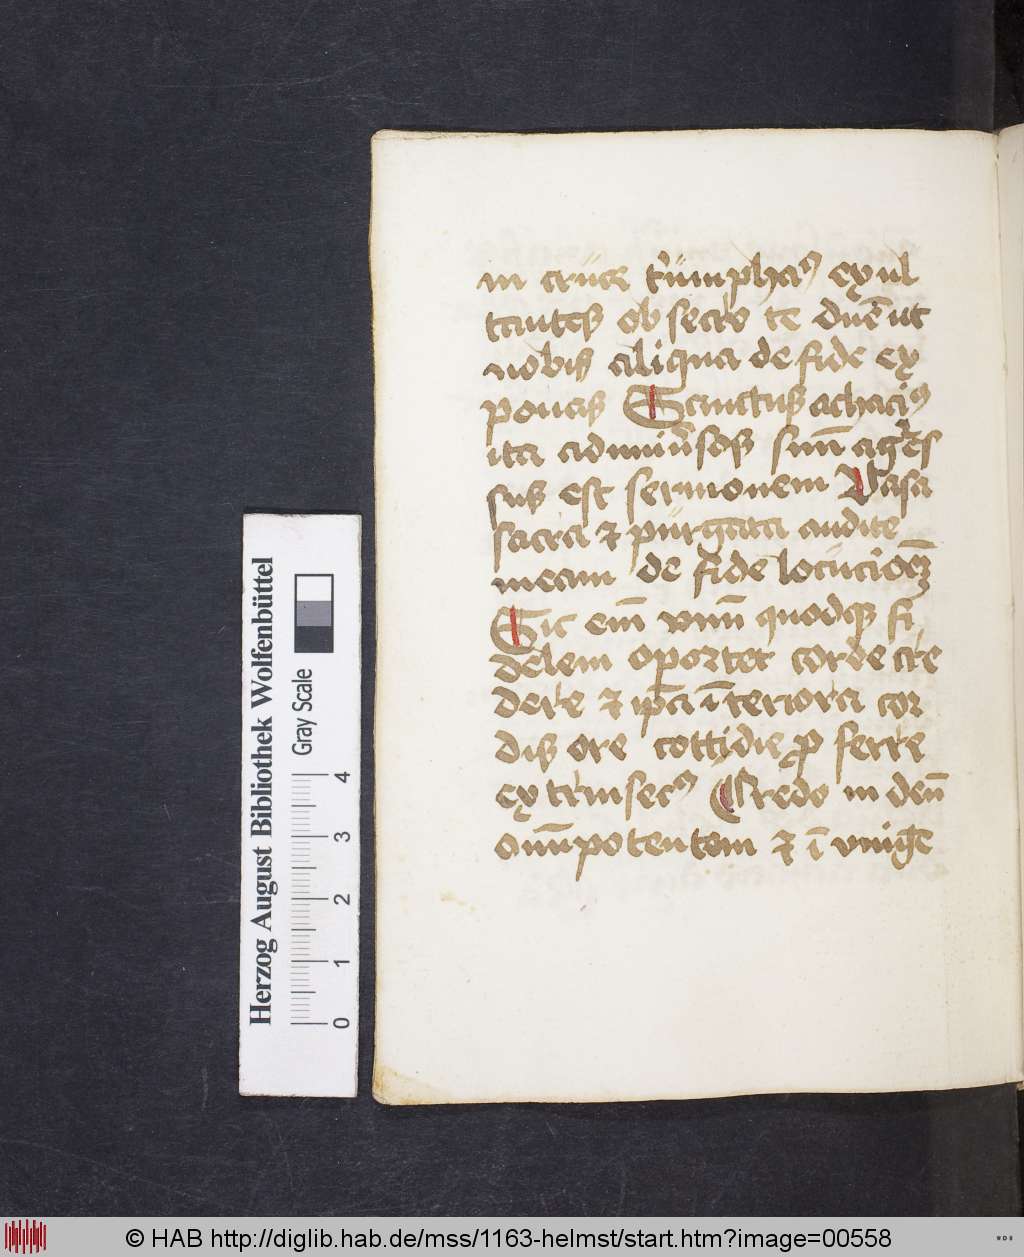 in cruce triumphas exul
tantes ob secro te dnē ut
nobis aliqua de fide ex
ponas Sanctus achacius
ita ad miūsos suū agres
sus est sermonem Vasa
sacra et purgata audite
meam de fide locucioēʒ
Sic eni᷑ vnū quodqꝫ fi
delem oportet corde cre
dere et ip̄a īteriora cor
dis ore cottidie ꝓ ferre
ex trinsecus Credo in deū
omīpotentem et ī vnigē
Herzog August Bibliothek Wolfenbüttel
Gray Scale
0 1 2 3 4
© HAB http://diglib.hab.de/mss/1163-helmst/start.htm?image=00558